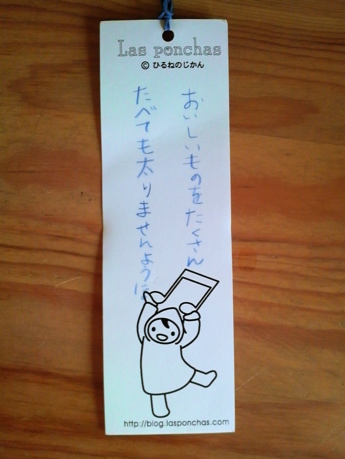 Las ponchas
© ひるねのじかん
おいしいものをたくさん
たべても太りませんように
http://blog.lasponchas.com